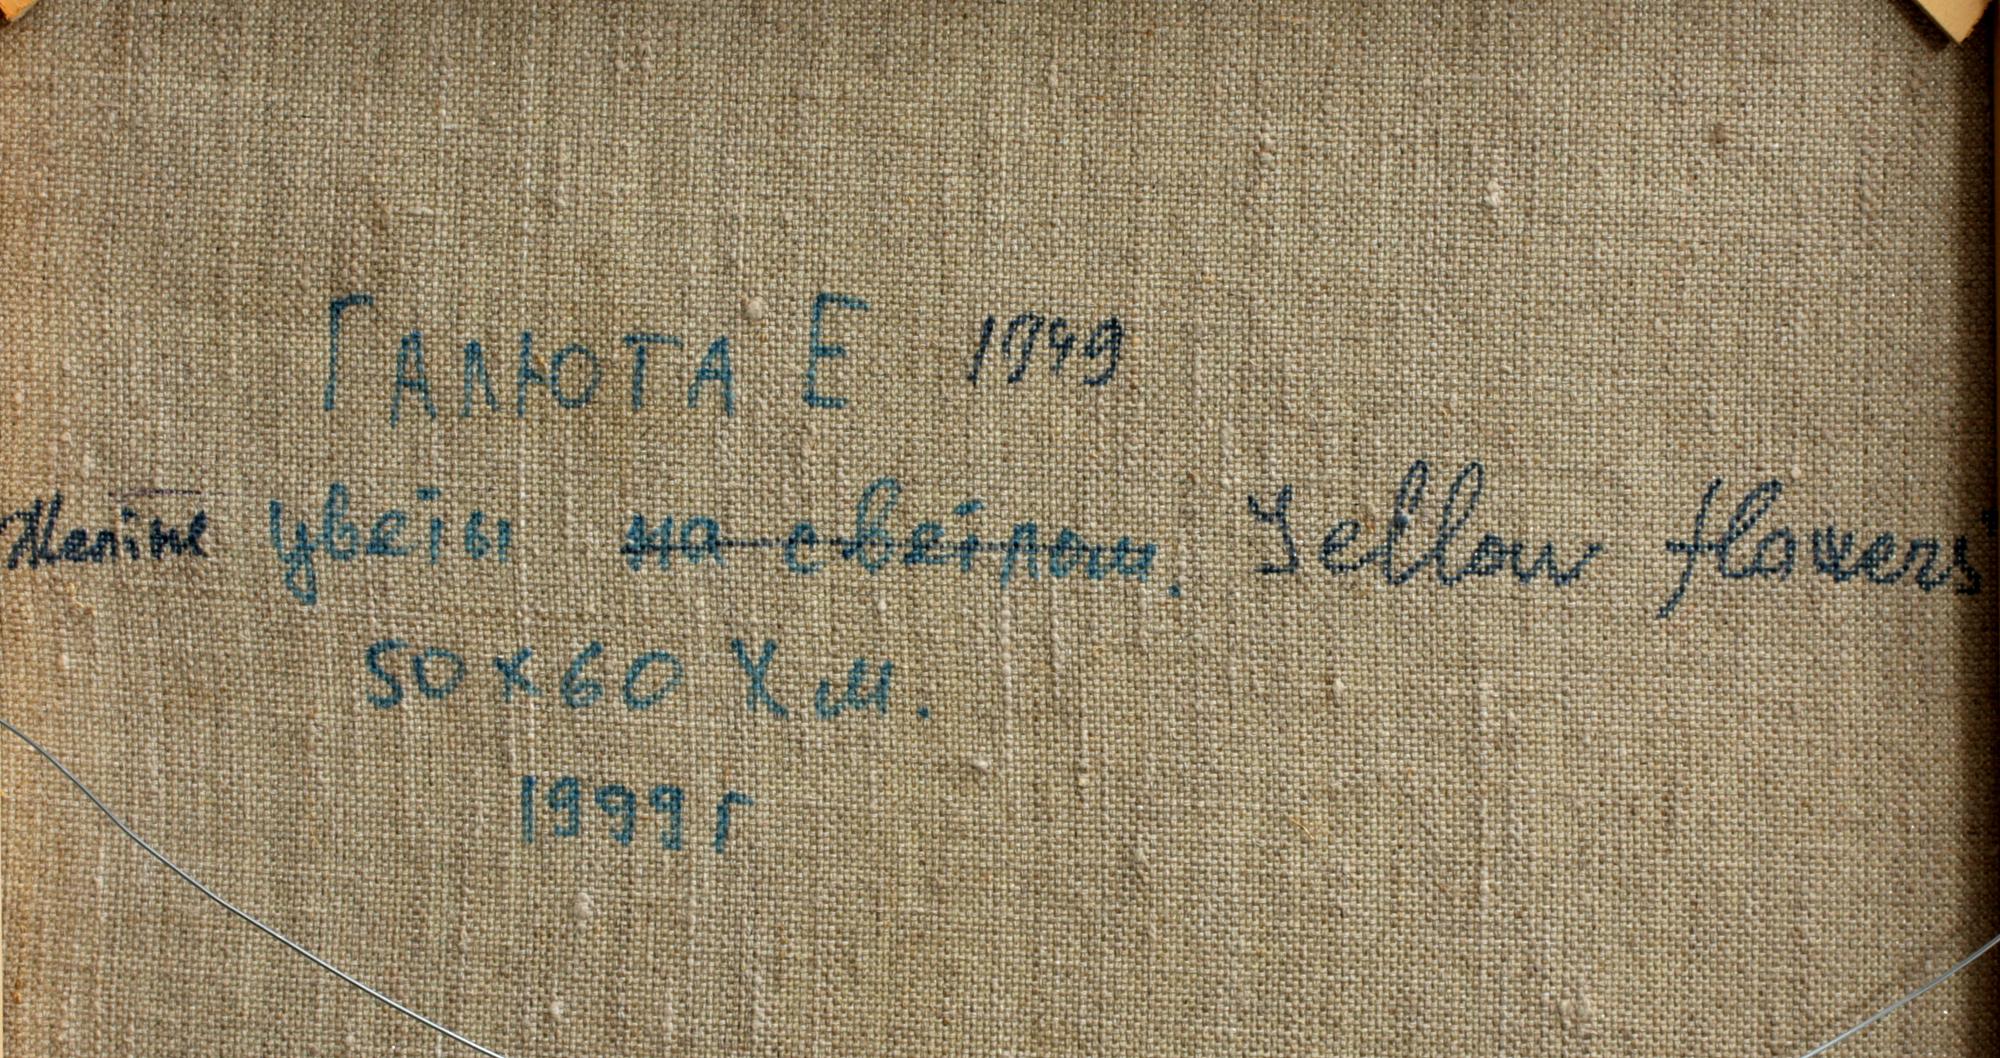 ГАЛЮТА Е 1949
Желтые цветы на светлом. Yellow flowers
50х60 Х м.
1999 г